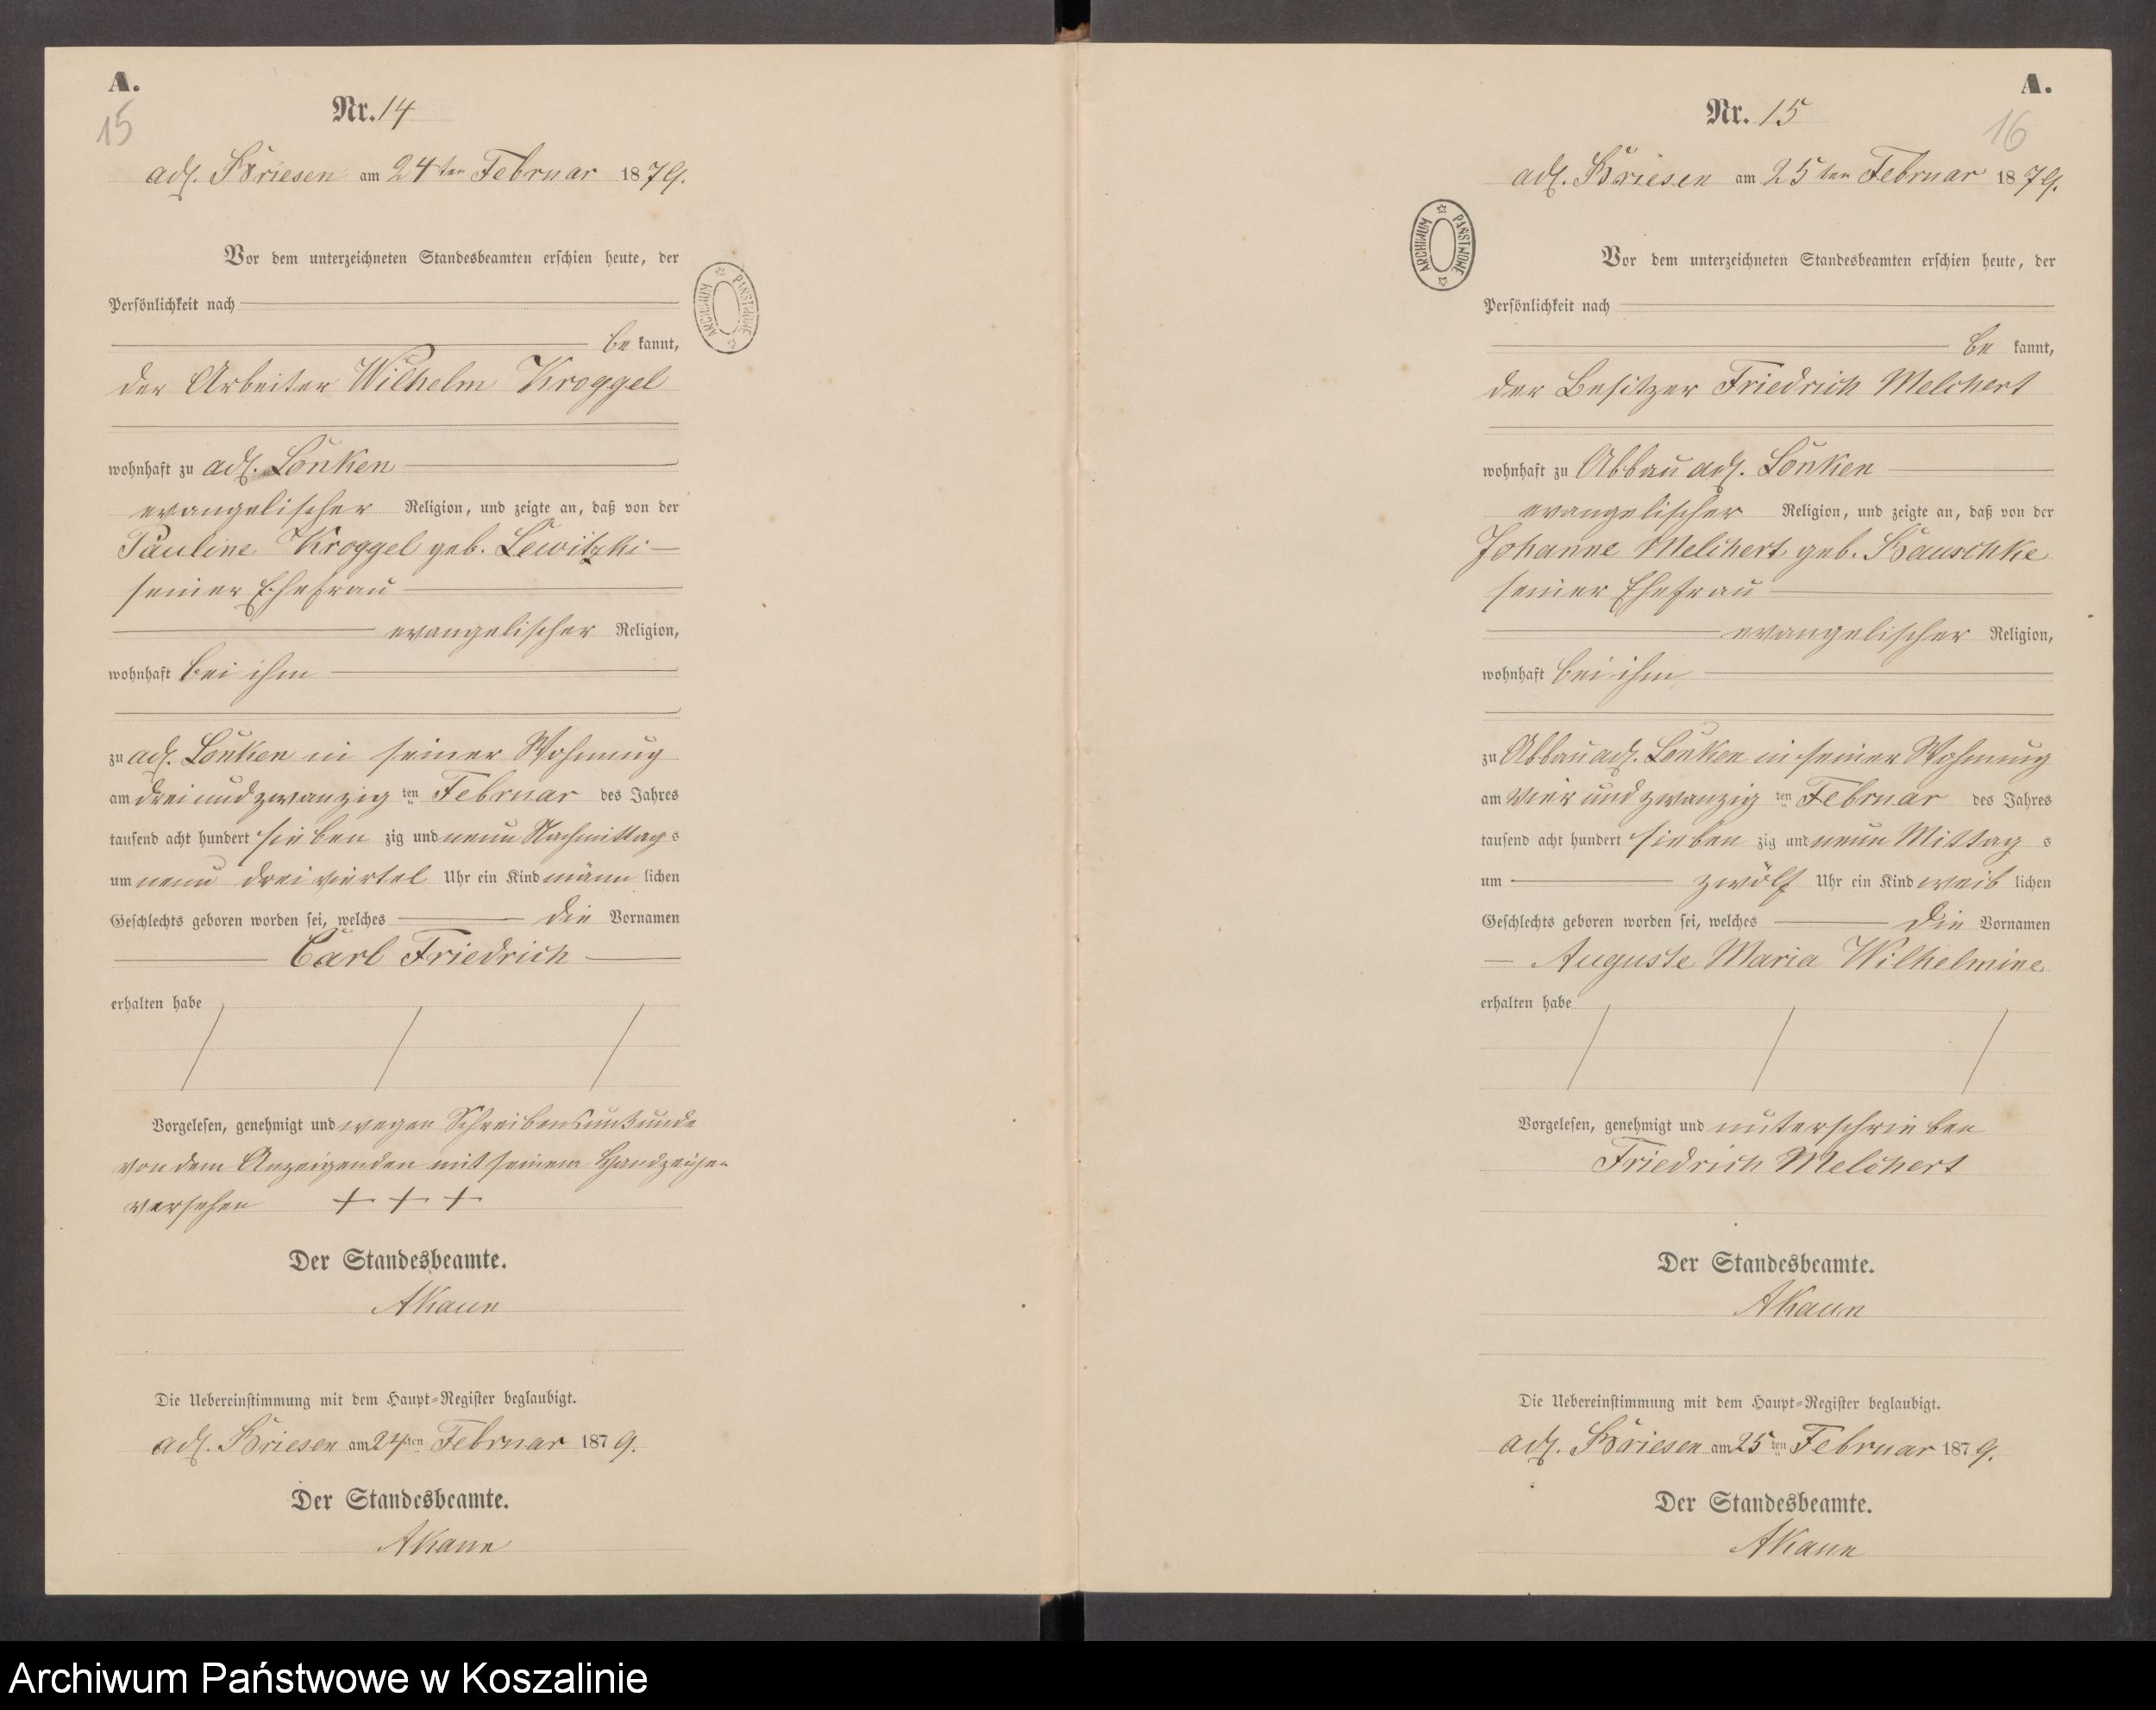 A.
15
Nr. 14
adl. Briesen am 24ten Februar 1879.
Vor dem unterzeichneten Standesbeamten erschien heute, der
Persönlichkeit nach
be kannt,
der Arbeiter Wilhelm Kroggel
wohnhaft zu adl. Lonken
evangelischer Religion, und zeigte an, daß von der
Pauline Kroggel geb. Lewitzki
seiner Ehefrau
evangelischer Religion,
wohnhaft bei ihm
zu adl. Lonken in seiner Wohnung
am drei und zwanzig ten Februar des Jahres
tausend acht hundert sieben zig und neun Nachmittags
um neun drei viertel Uhr ein Kind männ lichen
Geschlechts geboren worden sei, welches die Vornamen
Carl Friedrich
erhalten habe
Vorgelesen, genehmigt und wegen Schreibensunkunde
von dem Anzeigenden mit seinem Handzeichen
versehen + + +
Der Standesbeamte.
AKaun
Die Uebereinstimmung mit dem Haupt-Register beglaubigt.
adl. Briesen am 24ten Februar 1879.
Der Standesbeamte.
AKaun
ARCHIWUM PAŃSTWOWE
A.
16
Nr. 15
adl. Briesen am 25ten Februar 1879.
ARCHIWUM PAŃSTWOWE
Vor dem unterzeichneten Standesbeamten erschien heute, der
Persönlichkeit nach
be kannt,
der Besitzer Friedrich Melchert
wohnhaft zu Abbau adl. Lonken
evangelischer Religion, und zeigte an, daß von der
Johanne Melchert geb. Bauschke
seiner Ehefrau
evangelischer Religion,
wohnhaft bei ihm
zu Abbau adl. Lonken in seiner Wohnung
am vier und zwanzig ten Februar des Jahres
tausend acht hundert sieben zig und neun Mittag s
um zwölf Uhr ein Kind weib lichen
Geschlechts geboren worden sei, welches die Vornamen
Auguste Maria Wilhelmine
erhalten habe
Vorgelesen, genehmigt und unterschrieben
Friedrich Melchert
Der Standesbeamte.
AKaun
Die Uebereinstimmung mit dem Haupt-Register beglaubigt.
adl. Briesen am 25ten Februar 1879.
Der Standesbeamte.
AKaun
Archiwum Państwowe w Koszalinie